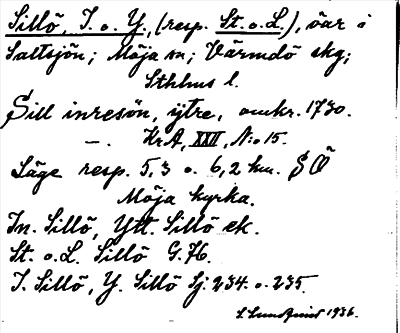 Sillö, I. o. Y., (resp. St. o. L.), öar i
Saltsjön; Möja sn; Värmdö skg;
Sthlms l.
Sill inresön, ytre, omkr. 1730.
—"— Kr.A, XXII, N:o 15.
Läge resp. 5,3 o. 6,2 km. S Ö
Möja kyrka.
In. Sillö, Ytt. Sillö ek.
St. o. L. Sillö G.76.
I. Sillö, Y. Sillö Sj. 234. o. 235.
S. Lundquist 1936.